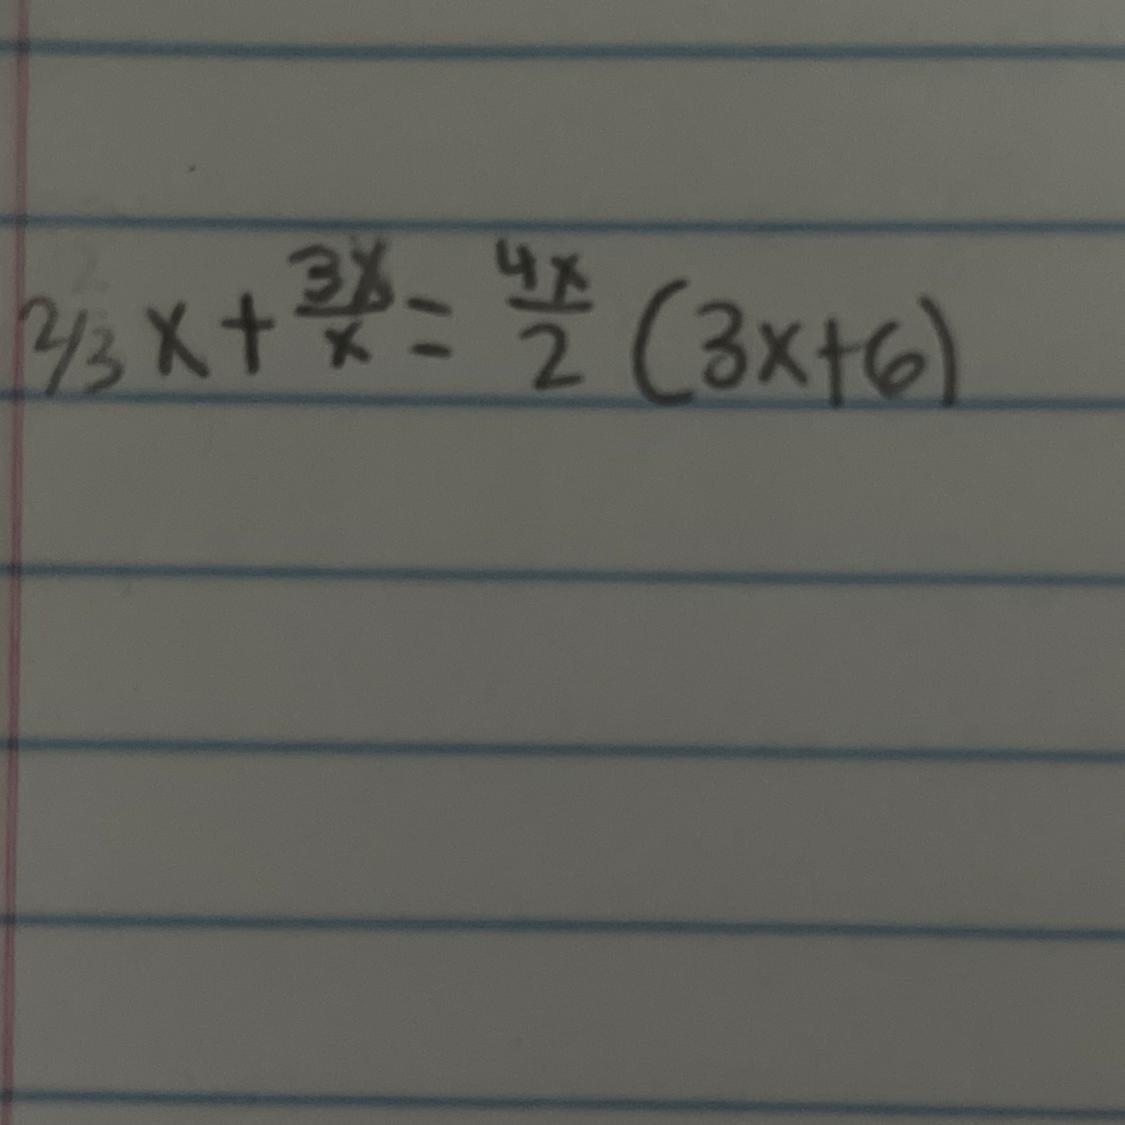 2/3 x + 3x/x = 4x/2 (3x+6)